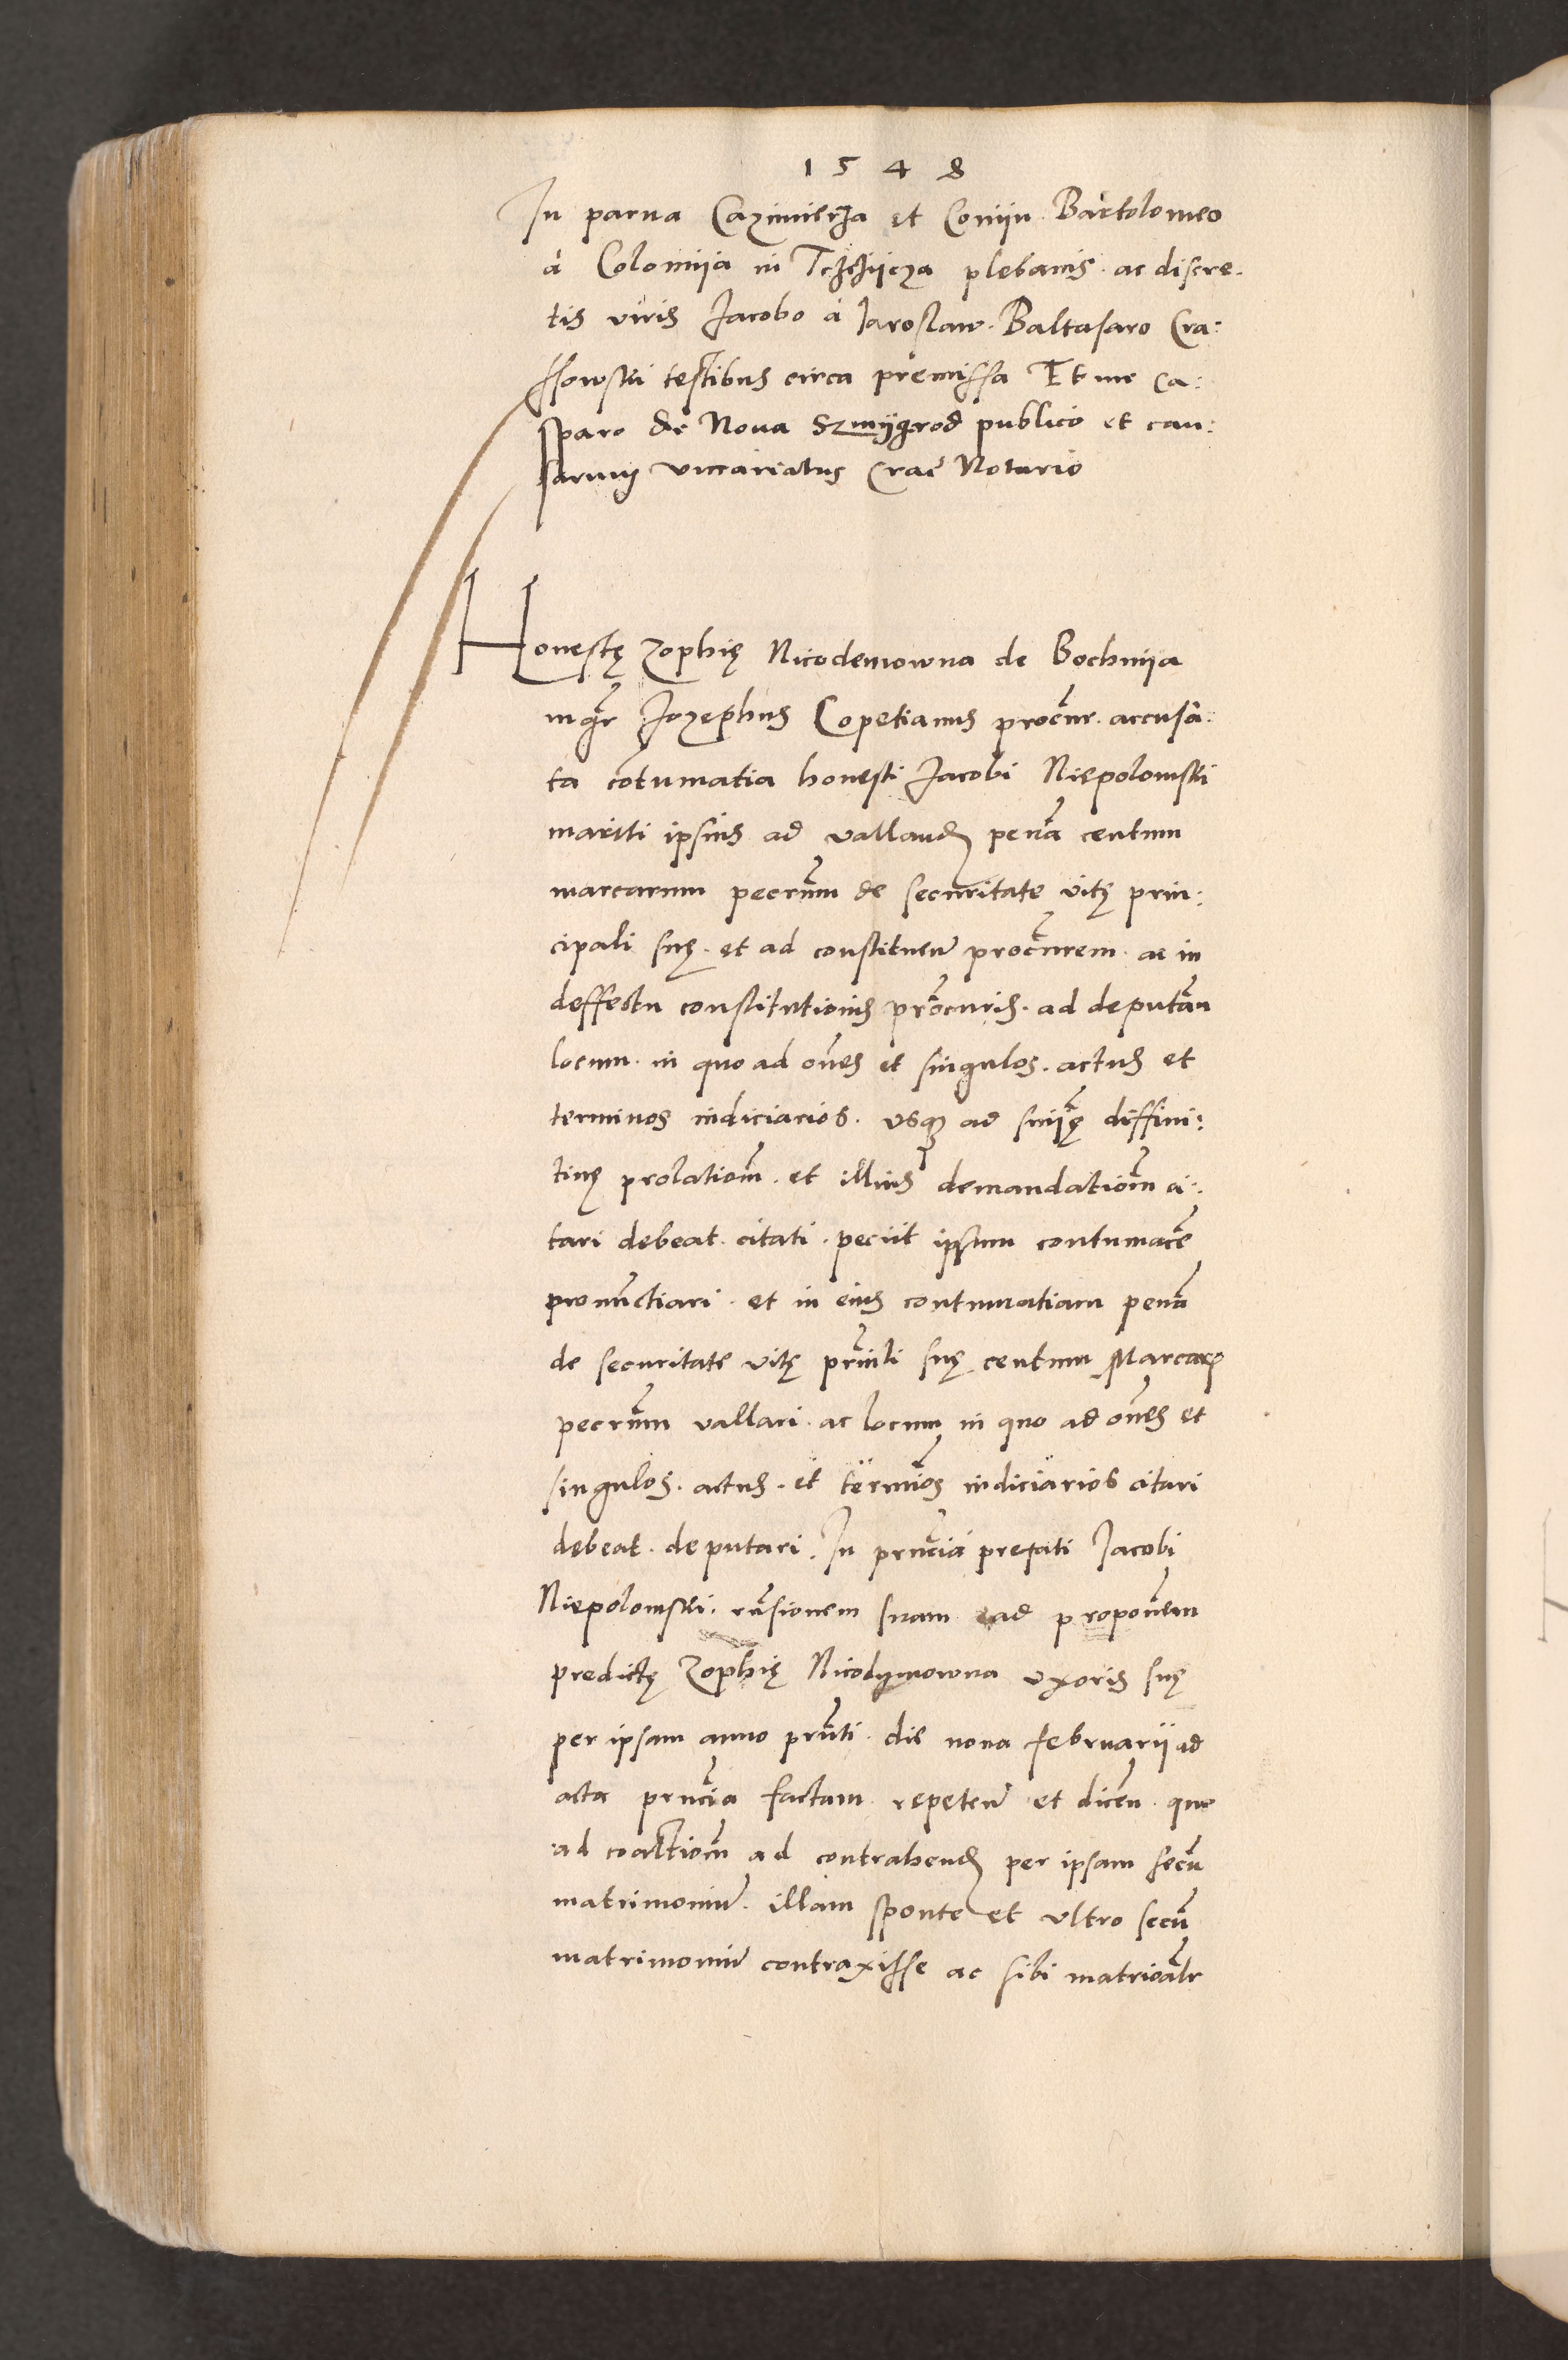 1548
In parua Cazimierza et Coniin. Bartolomeo
à Colomija in plebanis. ac discre.
tis viris Jacobo à Jaroslaw. Baltasaro Cra:
ssowski testibus circa premissa Et me Ca:
sparo de Noua Szmijgrod publico et cau:
sarum vicariatus Crac̄ Notario
Honestę Zophię Nicodemowna de Bochnija
mgr̄ Jozephus Copetianus procur̄. accusa:
ta cōtumatia honesti Jacobi Niepolomski
mariti ipsius ad vallanđ penā centum
marcarum pecrūm de securitate vitę prin:
cipali suę. et ad constituen̄ procurem̄. ac in
deffectu constitutionis procuris̄. ad deputān
locum. in quo ad ones̄ et singulos. actus et
terminos iudiciarios. vsq̨ ad sniję̄ diffini:
tiuę prolatiom̄. et illius demandatiom̄ ci:
tari debeat. citati. peciit ipsum contumacē
pronunctiari. et in eius contumatiam penā
de securitate vitę prīnli suę centum Marcarꝝ
pecrūm vallari. ac locum in quo ad ones̄ et
singulos. actus. et termios̄ iudiciarios citari
debeat. deputari. In prnciā prefati Jacobi
Niepolomski. rn̄sionem suam ad proponem̄
predictę Zophię Nicodymowna vxoris suę
per ipsam anno prn̄ti. die nona februarij ad
acta prn̄cia factam. repeten̄ et dicen̄. quo
ad coactiom̄ ad contrahenđ per ipsam secū
matrimoniū. illam sponte et vltro secū
matrimoniū contraxisse ac sibi matrioālr